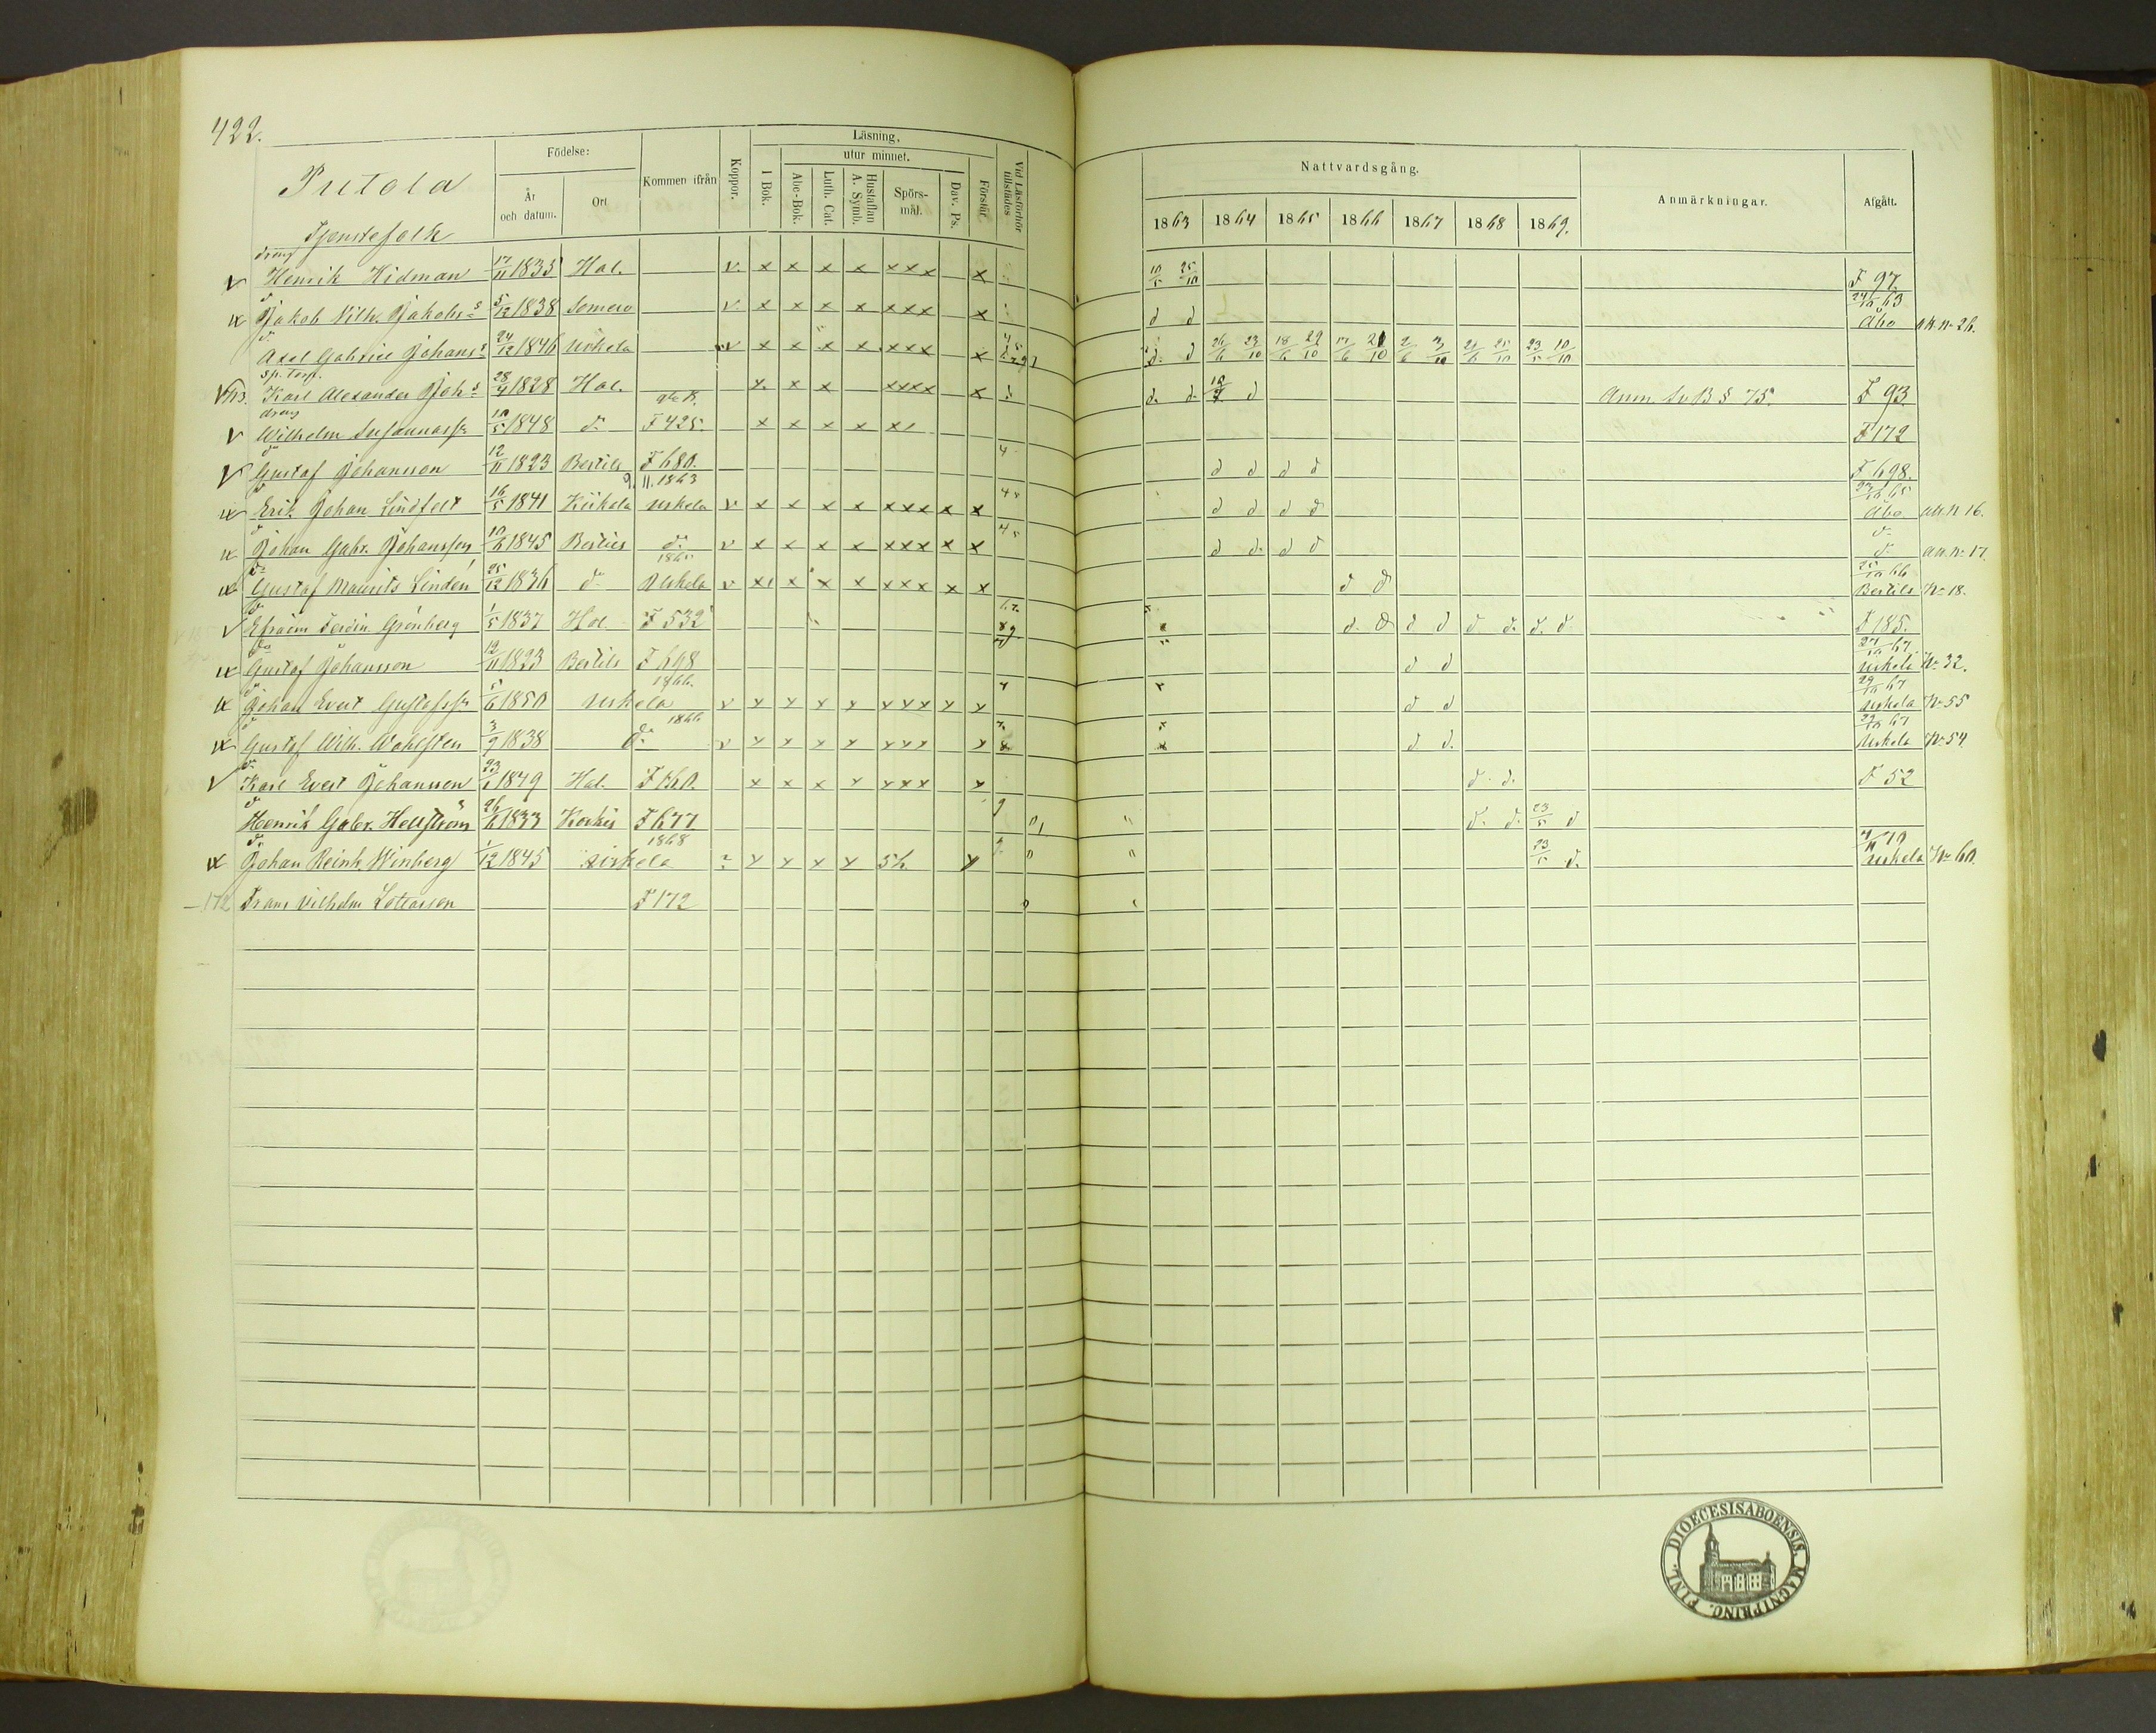 422.
Putola
Tjenstefolk
Födelse:
År och datum.
Ort
Kommen ifrån
Koppor.
Läsning,
utur minnet.
I Bok.
Abc-Bok.
Luth. Cat.
Hustaflan A. Symb.
Spörsmål.
Dav. Ps.
Förstår
Vid Läsförhör tillstädes
Nattvardsgång.
1863 1864 1865 1866 1867 1868 1869.
Anmärkningar.
Afgått.
dreng
v Henrik Hidman 17/11 1833 Hal. v. x x x x xxx x 10/5 25/10 F 97.
Jakob Vilh. Jakobs s 5/12 1838 Somero v. x x x x xxx x d d 24/10 63 Åbo N. 26.
Axel Gabriel Johans s 24/12 1846 Uskela v x x x x xxx x d. d 26/6 23/10 18/6 29/10 17/6 21/10 2/6 3/10 21/6 25/10 23/5 10/10
Sp. Torp.
Karl Alexander Joh s 28/4 1828 Hal. x x x xxxx x d. d. d Anm. S. B § 75. F 93.
dreng
v Wilhelm Susannass n 10/5 1848 d:o F 425. x x x x F 172
v Gustaf Johansson 12/11 1823 Bertils F 680. 4 d d d d F 698.
9. 11. 1863
Erik Johan Lindfelt 16/5 1841 Kiikala Uskela v x x x x xxx x x d d d d Åbo N 16.
Johan Gabr. Johansson 10/6 1845 Bertils d:o v x x x x xxx x x d d. d d d:o N:o 17.
1865
Gustaf Maurits Lindén 25/12 1836 d:o Uskela v x x x x xxx x x d d 25/10 66 Bertils N:o 18.
v Efraim Ferdin Grönberg 1/5 1837 Hal. F 532 d. d d d d d. d. d F 185.
Gustaf Johansson 12/11 1823 Bertils F 698 d d 27/10 67. Uskela N:o 32.
1866.
Johan Evert Gustafss n 5/6 1850 Uskela v x x x x xxx x x d d 29/10 67 Uskela N:o 55
1866
Gustaf Wilh. Wahlsten 3/9 1838 d:o v x x x x xxx x d d. 29/10 67 Uskela N:o 54
v Karl Evert Johansson 1849 Hal. F 160. x x x x xxx x d. d. F 52
Henrik Gabr. Hellström 26/6 1833 Koskis F 677. d. d. 23/5 d
1868
Johan Reinh. Winberg 1/12 1845 Uskela x x x x x 23/5 d. 70 Uskela N:o 60.
172 Frans Vilhelm Lottasson F 172
DIOECESIS ABOENSIS. MAGNI PRINC. FINL.